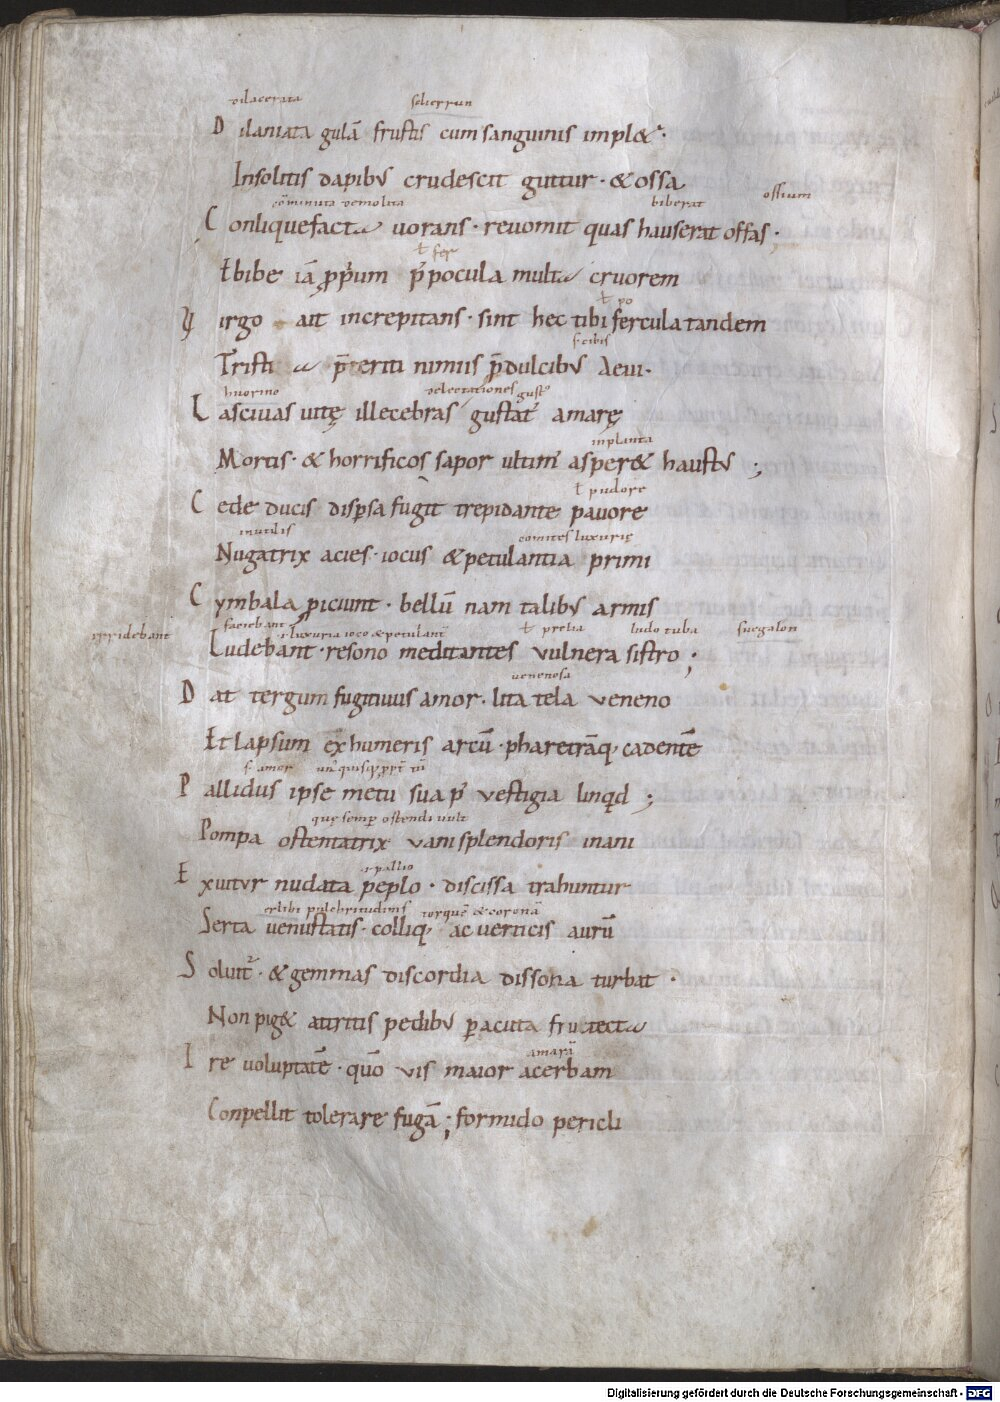 dilacerata scherzun
D ilaniata gulā frustis cum sanguinis impl&·
Insolitis dapibus crudescit guttur · & ossa
cōminuta demolita biberat ossium
C onliquefacta uorans · reuomit quas hauserat offas ;
ł fex
Ebibe iā ꝓprium p̄ pocula multa cruorem
ł po
V irgo ait increpitans · sint hec tibi fercula tandem
s· cibis
Tristia p̄teriti nimiis p̄dulcibus Aeui·
huorino delectationes gustus
L asciuas uitę illecebras gustatus amarę
inplanta
Mortis · & horrificos sapor ultimus asper& haustus ;
ł pudore
C ede ducis dispersa fugit trepidante pauore
inutilis comites luxurię
Nugatrix acies · iocus & petulantia primi
C ymbala ꝓiciunt · bellū nam talibus armis
irridebant faciebant s· luxuria ioco & petulant̄ ł prelia ludo tuba suegalon
Ludebant · resono meditantes vulnera sistro ;
uenenosa
D at tergum fugitiuus amor · lita tela veneno
Et lapsum ex humeris arcū · pharetrāq; cadentē
s· amor
P allidus ipse metu sua post vestigia linquid ;
quę semper ostendi uult
Pompa ostentatrix vani splendoris inani
s· pallio
E xuitur nudata peplo · discissa trahuntur
pulchritudinis torquē & coronā
Serta uenustatis · colliq; ac uerticis aurū
S oluitur · & gemmas discordia dissona turbat ·
Non pig& attritis pedibus peracuta frutecta
amarā
I re uoluptatē · quō vis maior acerbam
Conpellit tolerare fugā ; formido pericli
Digitalisierung gefördert durch die Deutsche Forschungsgemeinschaft - DFG